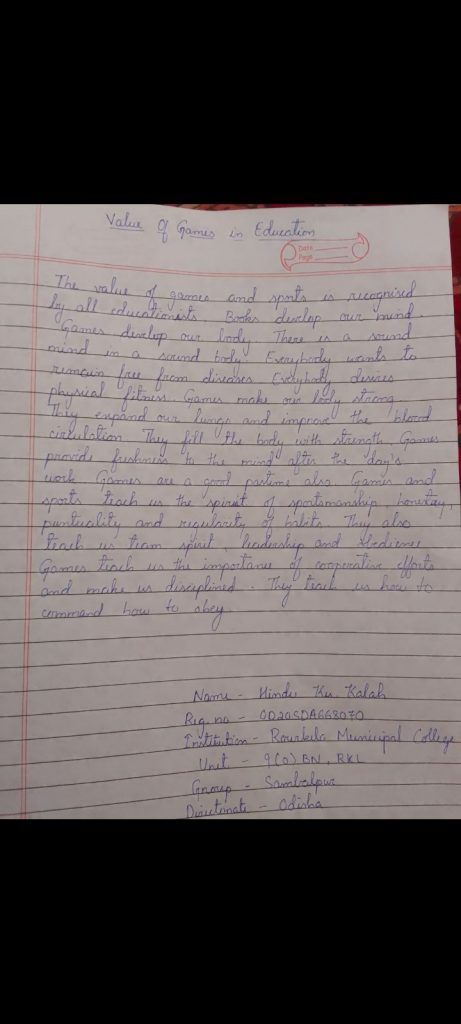 Value Of Games in Education
Date
Page
The value of games and sports is recognised
by all educationists. Books develop our mind.
Games develop our body. There is a sound
mind in a sound body. Everybody wants to
remain free from diseases. Everybody desires
physical fitness. Games make our body strong.
They expand our lungs and improve the blood
circulation. They fill the body with strength. Games
provide freshness to the mind after the day's
work. Games are a good pastime also. Games and
sports teach us the spirit of sportsmanship, honestay,
puntuality and regularity of habits. They also
teach us team spirit, leadership and obedience.
Games teach us the importance of cooperative efforts
and make us disciplined. They teach us how to
command how to obey.
Name - Hindu Ku. Kalah
Reg. no - OD20SDA668070
Institution - Rourkela Municipal College
Unit - 9(O) BN, RKL
Group - Sambalpur
Directorate - Odisha